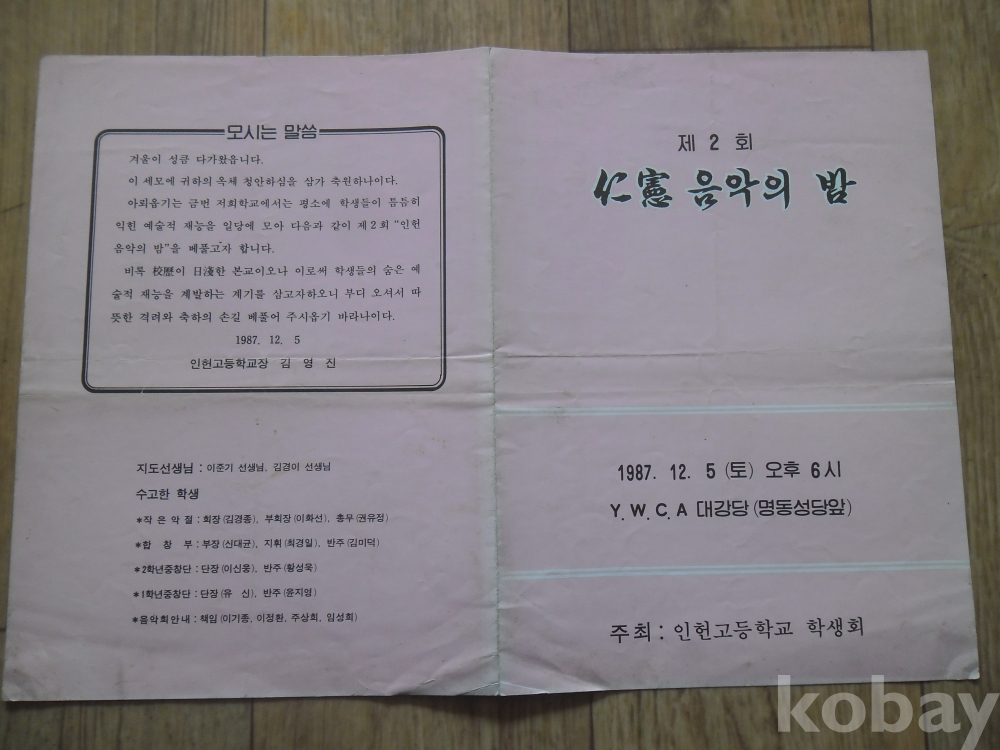 모시는 말씀
겨울이 성큼 다가왔읍니다.
이 세모에 귀하의 옥체 청안하심을 삼가 축원하나이다.
아뢰옵기는 금번 저희학교에서는 평소에 학생들이 틈틈히
익힌 예술적 재능을 일당에 모아 다음과 같이 제2회 "인헌
음악의 밤"을 베풀고자 합니다.
비록 校歷이 日淺한 본교이오나 이로써 학생들의 숨은 예
술적 재능을 계발하는 계기를 삼고자하오니 부디 오셔서 따
뜻한 격려와 축하의 손길 베풀어 주시옵기 바라나이다.
1987. 12. 5
인헌고등학교장 김 영 진
지도선생님 : 이준기 선생님, 김경이 선생님
수고한 학생
*작 은 악 절 : 회장(김경종), 부회장(이화선), 총우(권유정)
*합 창 부 : 부장(신대균), 지휘(최경일), 반주(김미덕)
*2학년중창단 : 단장(이신웅), 반주(황성욱)
*1학년중창단 : 단장(유 신), 반주(윤지영)
*음악회안내 : 책임(이기종, 이정환, 주상희, 임성희)
제 2 회
仁憲 음악의 밤
1987. 12. 5 (토) 오후 6시
Y. W. C. A 대강당 (명동성당앞)
주최 : 인헌고등학교 학생회
kobay